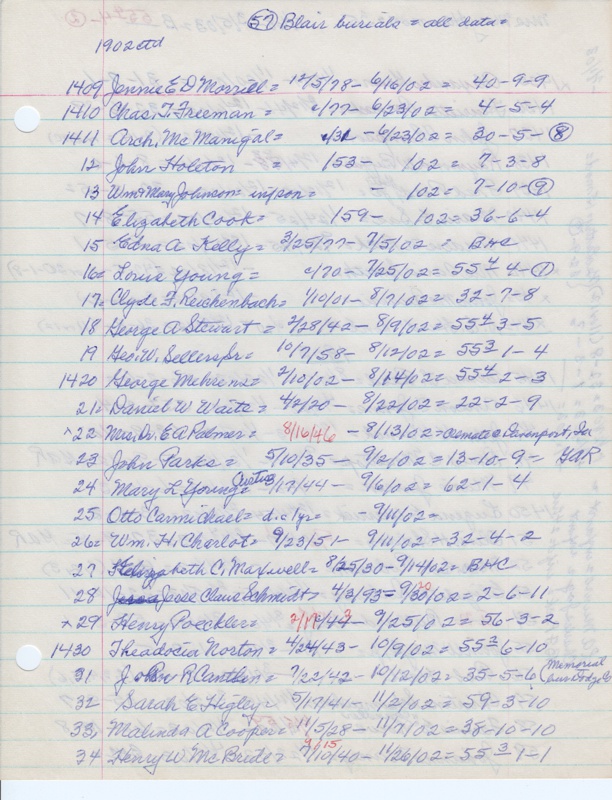 57 Blair burials = all data =
1902 ctd
1409 Jennie E D Morrell = 12/5/78 - 6/16/02 = 40-9-9
1410 Chas. T. Freeman = c/77 - 6/23/02 = 4-5-4
1411 Arch, McManigal = c/31 - 6/23/02 = 20-5-8
12 John Holston = 153 - 102 = 7-3-8
13 Wm & Mary Johnson = inf son = - 102 = 7-10-9
14 Elizabeth Cook = 159 - 102 = 36-6-4
15 Edna A Kelly = 3/25/77 - 7/5/02 = BHC
16 = Louie Young = c/70 - 7/25/02 = 55 4-4-1
17 = Clyde F. Reichenbach = 1/10/01 - 8/7/02 = 32-7-8
18 George A Stewart = 2/28/42 - 8/9/02 = 55 4 3-5
19 Geo. W. Sellers Sr = 10/7/58 - 8/12/02 = 55 3 1-4
1420 George Mehrens = 2/10/02 - 8/14/02 = 55 4 2-3
21 = Daniel W Waite = 4/2/20 - 8/22/02 = 22-2-9
x22 Mrs, Dr. E A Palmer = 8/16/46 - 8/13/02 = Cremated Davenport, Ia
23 John Parks = 5/10/35 - 9/2/02 = 13-10-9 = GAR
24 Mary L Young = Curtis 3/17/44 - 9/6/02 = 62-1-4
25 Otto Carmichael = d.c 1yr = - 9/11/02 =
26 = Wm. H. Charlot = 9/23/51 - 9/11/02 = 32-4-2
27 Elizabeth C, Maxwell = 8/25/30 - 9/14/02 = BHC
28 Jesse Claus Schmidt = 4/3/93 = 9/30/02 = 2-6-11 20
x29 Henry Poeckler = 2/17/43 - 9/25/02 = 56-3-2
1430 Theadocia Norton = 4/24/43 - 10/9/02 = 55 3 6-10
31 R Cantlin = 7/22/42 - 10/12/02 = 35-5-6 (Memorial
32 Sarah E Higley = 5/17/41 - 11/2/02 = 59-3-10
33, Malinda A Cooper = 11/5/28 - 11/7/02 = 38-10-10
34 Henry W McBride = 9/10/40 - 11/26/02 = 55 3 1-1 9 15